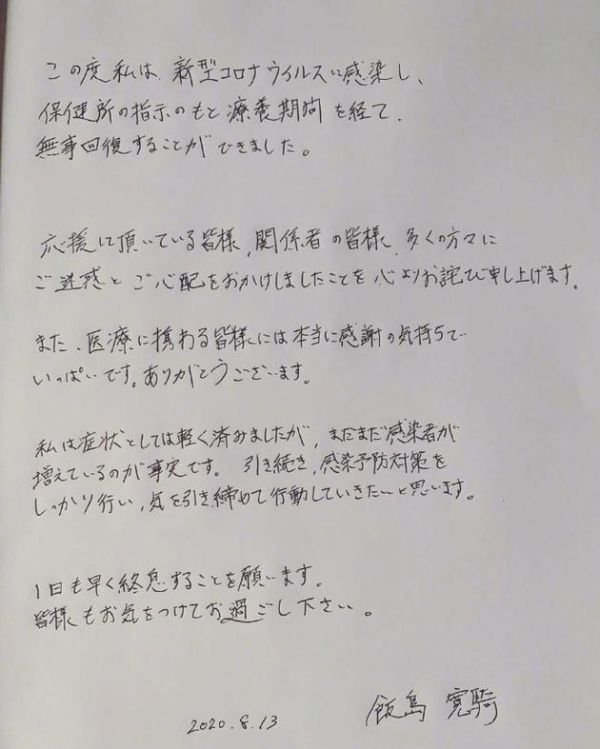 この度私は、新型コロナウイルスに感染し、
保健所の指示のもと療養期間を経て、
無事回復することができました。
応援して頂いている皆様、関係者の皆様、多くの方々に
ご迷惑とご心配をおかけしましたことを心よりお詫び申し上げます。
また、医療に携わる皆様には本当に感謝の気持ちで
いっぱいです。ありがとうございます。
私は症状としては軽く済みましたが、まだまだ感染者が
増えているのが事実です。引き続き、感染予防対策を
しっかり行い、気を引き締めて行動していきたいと思います。
1日も早く終息することを願います。
皆様もお気をつけてお過ごし下さい。
飯島 寛騎
2020.8.13